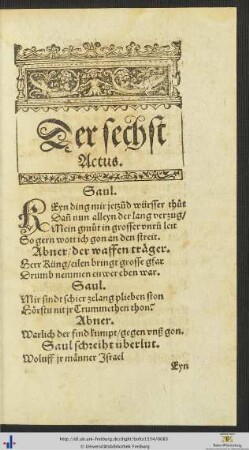 Der sechst
Actus.
Saul.
KEyn ding mir jetzūd würser thůt
Dañ nun alleyn der lang verzug/
Mein gmüt in grosser vnrů leit
So gern wolt ich gon an den streit.
Abner/der waffen träger.
Herr Küng/eilen bringt grosse gfar
Drumb nemmen ewer eben war.
Saul.
Mir sindt schier zelang plieben ston
Hörstu nit jr Trummethen thon?
Abner.
Warlich der find kumpt/gegen vnß gon.
Saul schreiht überlut.
Woluff jr männer Israel
Eyn
© Universitätsbibliothek Freiburg